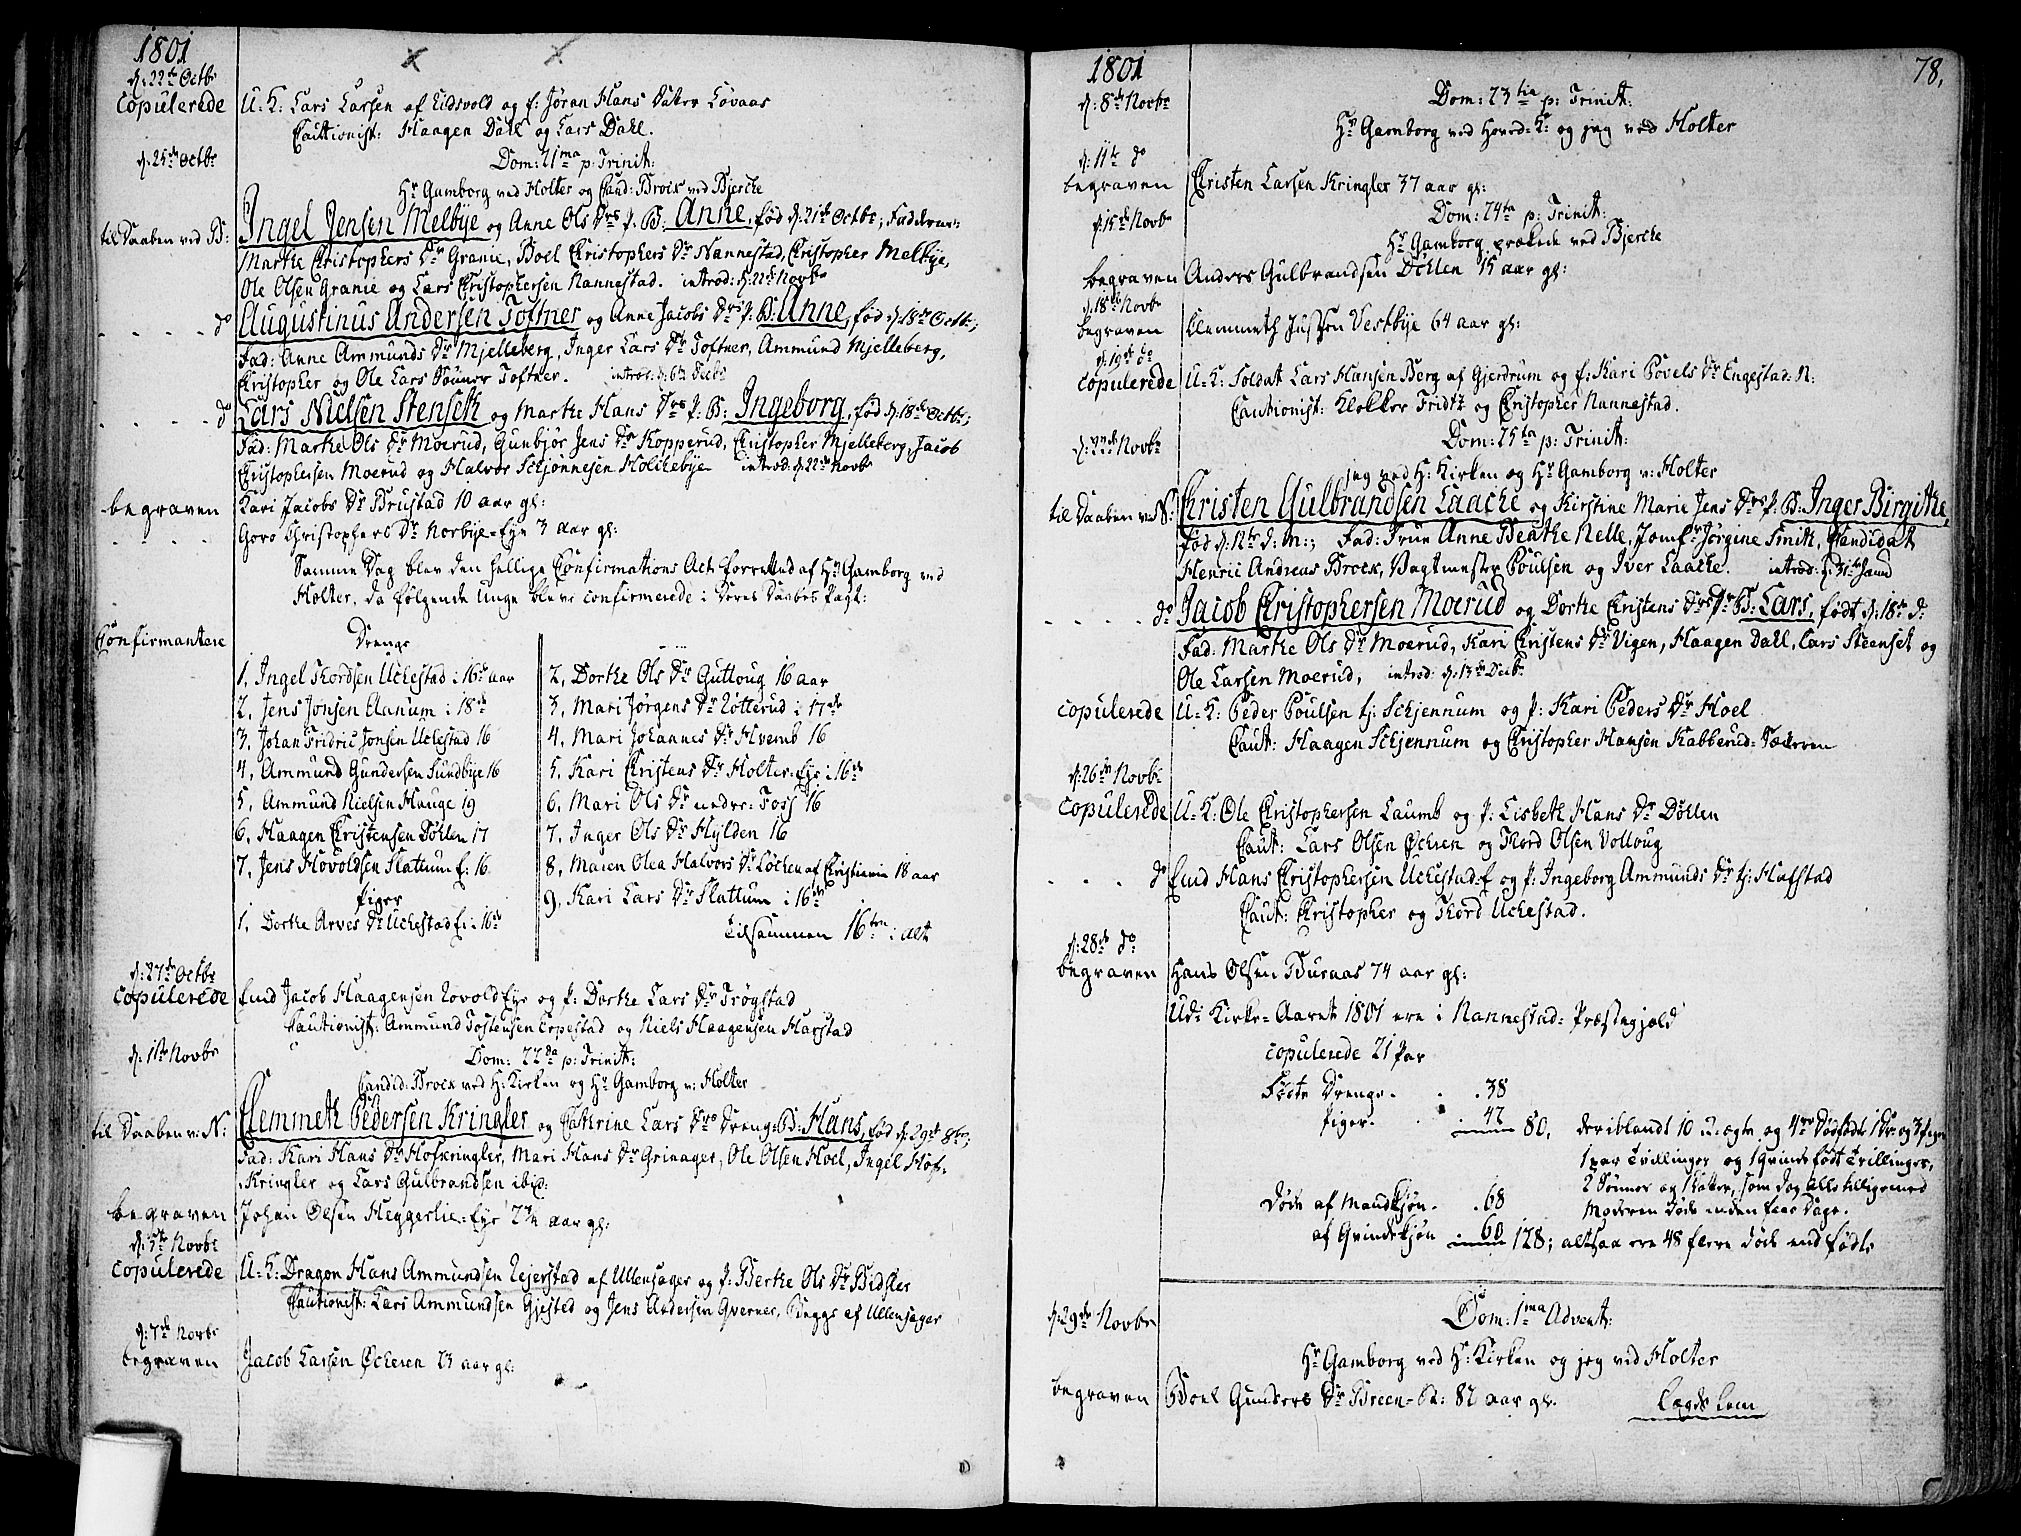 1801
d: 22de Octbr
copulerede U: K: Lars Larsen af Eidsvold og f: Jøran Hans Datter Lovaas
Cautionist: Haagen Dahl og Lars Dahl.
d: 25de Octbr Dom: 21ma p: Trinit:
Hr Gamborg ved Holter og Cand: Brock ved Bjercke
til Daaben ved B: Ingel Jensen Melbye og Anne Ols Drs P. B: Anne, fød d: 21de Octbr; Faddere:
Marthe Christophers Dr Granie, Boel Christophers Dr Nannestad, Christopher Melbye,
Ole Olsen Granie og Lars Christophersen Nannestad. introd: d: 22de Novbr
do Augustinus Andersen Toftner og Anne Jacobs Drs P. B: Anne, fød d: 18de Octbr;
Fad: Anne Ammunds Dr Mjelleberg, Inger Lars Dr Toftner, Ammund Mjelleberg,
Christopher og Ole Lars Sønner Toftner. introd: d: 6te Decbr
do Lars Nielsen Stenseth og Marthe Hans Drs P. B: Ingeborg, fød d: 18de Octbr;
Fad: Marthe Ols Dr Moerud, Gunbjør Jens Dr Kopperud, Christopher Mjelleberg, Jacob
Christophersen Moerud og Halvor Schjønnesen Holckebye introd: d: 22de Novbr
begraven Kari Jacobs Dr Brustad 10 aar gl:
Goro Christophers Dr Norbye-Eye 3 aar gl:
Samme Dag blev den hellige Confirmations Act forrettet af Hr Gamborg ved
Holter, da følgende Unge bleve confirmerede i deres Daabes Pagt:
Confirmantere Drenge
1, Ingel Thordsen Uckestad i 16de aar
2, Jens Jonsen Aanum i 18de
3, Johan Fridric Jonsen Uckestad 16
4, Ammund Gundersen Sundbye 16
5, Ammund Nielsen Hauge 19
6, Haagen Christensen Døhlen 17
7, Jens Hovoldsen Slattum E: 16
Piger
1, Dorthe Arves Dr Uckestad E: i 16de
2, Dorthe Ols Dr Guttoug 16 aar
3, Mari Jørgens Dr Rotterud i 17de
4, Mari Johannes Dr Hvemb 16
5, Kari Christens Dr Holter-Eye i 16de
6, Mari Ols Dr nedre-Foss 16
7, Inger Ols Dr Hylden 16
8, Maren Olea Halvors Dr Løcken af Christiania 18 aar
9, Kari Lars Dr Slattum i 16de
Tilsammen 16ten i alt
d: 27de Octbr
copulerede Enc: Jacob Haagensen Rovold Eye og P. Dorthe Lars Dr Trøgstad
Cautionist: Ammund Tostensen Eppestad og Niels Haagensen Harstad
d: 1ste Novbr Dom: 22da p: Trinit:
Candid: Brock ved H: Kirken og Hr Gamborg v: Holter
til Daaben v: N: Clemmeth Pedersen Kringler og Cathrine Lars Drs Drenge B: Hans, fød d: 29de 8br;
Fad: Kari Hans Dr Hofkringler, Mari Hans Dr Grinager, Ole Olsen Hoel, Ingel Hof-
Kringler og Lars Gulbrandsen ibid:
begraven Johan Olsen Heggerlie-Eye 2 3/4 aar gl:
d: 5te Novbr
copulerede U: K: Dragon Hans Ammundsen Rejerstad af Ullensager og P. Berthe Ols Dr Bidsler
Cautionist: Lars Ammundsen Gjestad og Jens Andersen Qverner, Begge af Ullensager
d: 7de Novbr
begraven Jacob Larsen Ockeren 23 aar gl:
1801 78,
d: 8de Novbr Dom: 23tia p: Trinit:
Hr Gamborg ved Hoved-K: og jeg ved Holter
d: 11te do
begraven Christen Larsen Kringler 37 aar gl:
d: 15de Novbr Dom: 24ta p: Trinit:
Hr Gamborg prækede ved Bjercke
begraven Anders Gulbrandsen Døhlen 15 aar gl:
d: 18de Novbr
begraven Clemmeth Jussen Vestbye 64 aar gl:
d: 19de do
copulerede U: K: Soldat Lars Hansen Berg af Gjerdrum og f: Kari Povels Dr Engestad: N:
Cautionist: Klokker Fridtz og Christopher Nannestad.
d: 22de Novbr Dom: 25ta p: Trinit:
jeg ved H: Kirken og Hr Gamborg v: Holter
til Daaben v: N: Christen Gulbrandsen Laache og Kirstine Marie Jens Drs P. B: Inger Birgithe,
fød d: 12te d: M:; Fad: Frue Anne Beathe Nelle, Jomfr Jørgine Smith, Candidat
Henric Andreas Brock, Vagtmester Poulsen og Iver Laache. introd: d: 31te Janu
do Jacob Christophersen Moerud og Dorthe Christens Drs Dr B: Lars, født d: 18de do
Fad: Marthe Ols Dr Moerud, Kari Christens Dr Vigen, Haagen Dahl, Lars Steenset og
Ole Larsen Moerud, introd: d: 13de Decbr
copulerede U: K: Peder Poulsen h: Schjennum og P. Kari Peders Dr Hoel
Caut: Haagen Schjennum og Christopher Hansen Kabberud-Sæteren
d: 26de Novbr
copulerede U: K: Ole Christophersen Laumb og P. Lisbeth Hans Dr Døhlen
Caut: Lars Olsen Ockeren og Thord Olsen Volloug
do Enc: Hans Christophersen Uckestad-E og P. Ingeborg Ammunds Dr h: Hafstad
Caut: Christopher og Thord Uckestad.
d: 28de do
begraven Hans Olsen Buraas 74 aar gl:
Udi Kirke-Aaret 1801 ere i Nannestad-Præstegjeld
copulerede 21 Par
Fødte Drenge. . . 38
Piger. . . 42
80, deriblandt 10 U-ægte og 4re Dødfødte 1 Dr. og 3 Piger
1 par Tvillinger og 1 Qvinde født Trillinger,
2 Sønner og 1 Datter, som dog alle tilligemed
Moderen døde inden faae Dage.
Døde af Mandkjøn. . 68
af Qvindekjøn 60
128; altsaa ere 48 flere døde end fødte
d: 29de Novbr Dom: 1ma Advent:
Hr Gamborg ved H: Kirken og jeg ved Holter
begraven Boel Gunders Dr Breen-Ei: 82 aar gl. Lægds Lem